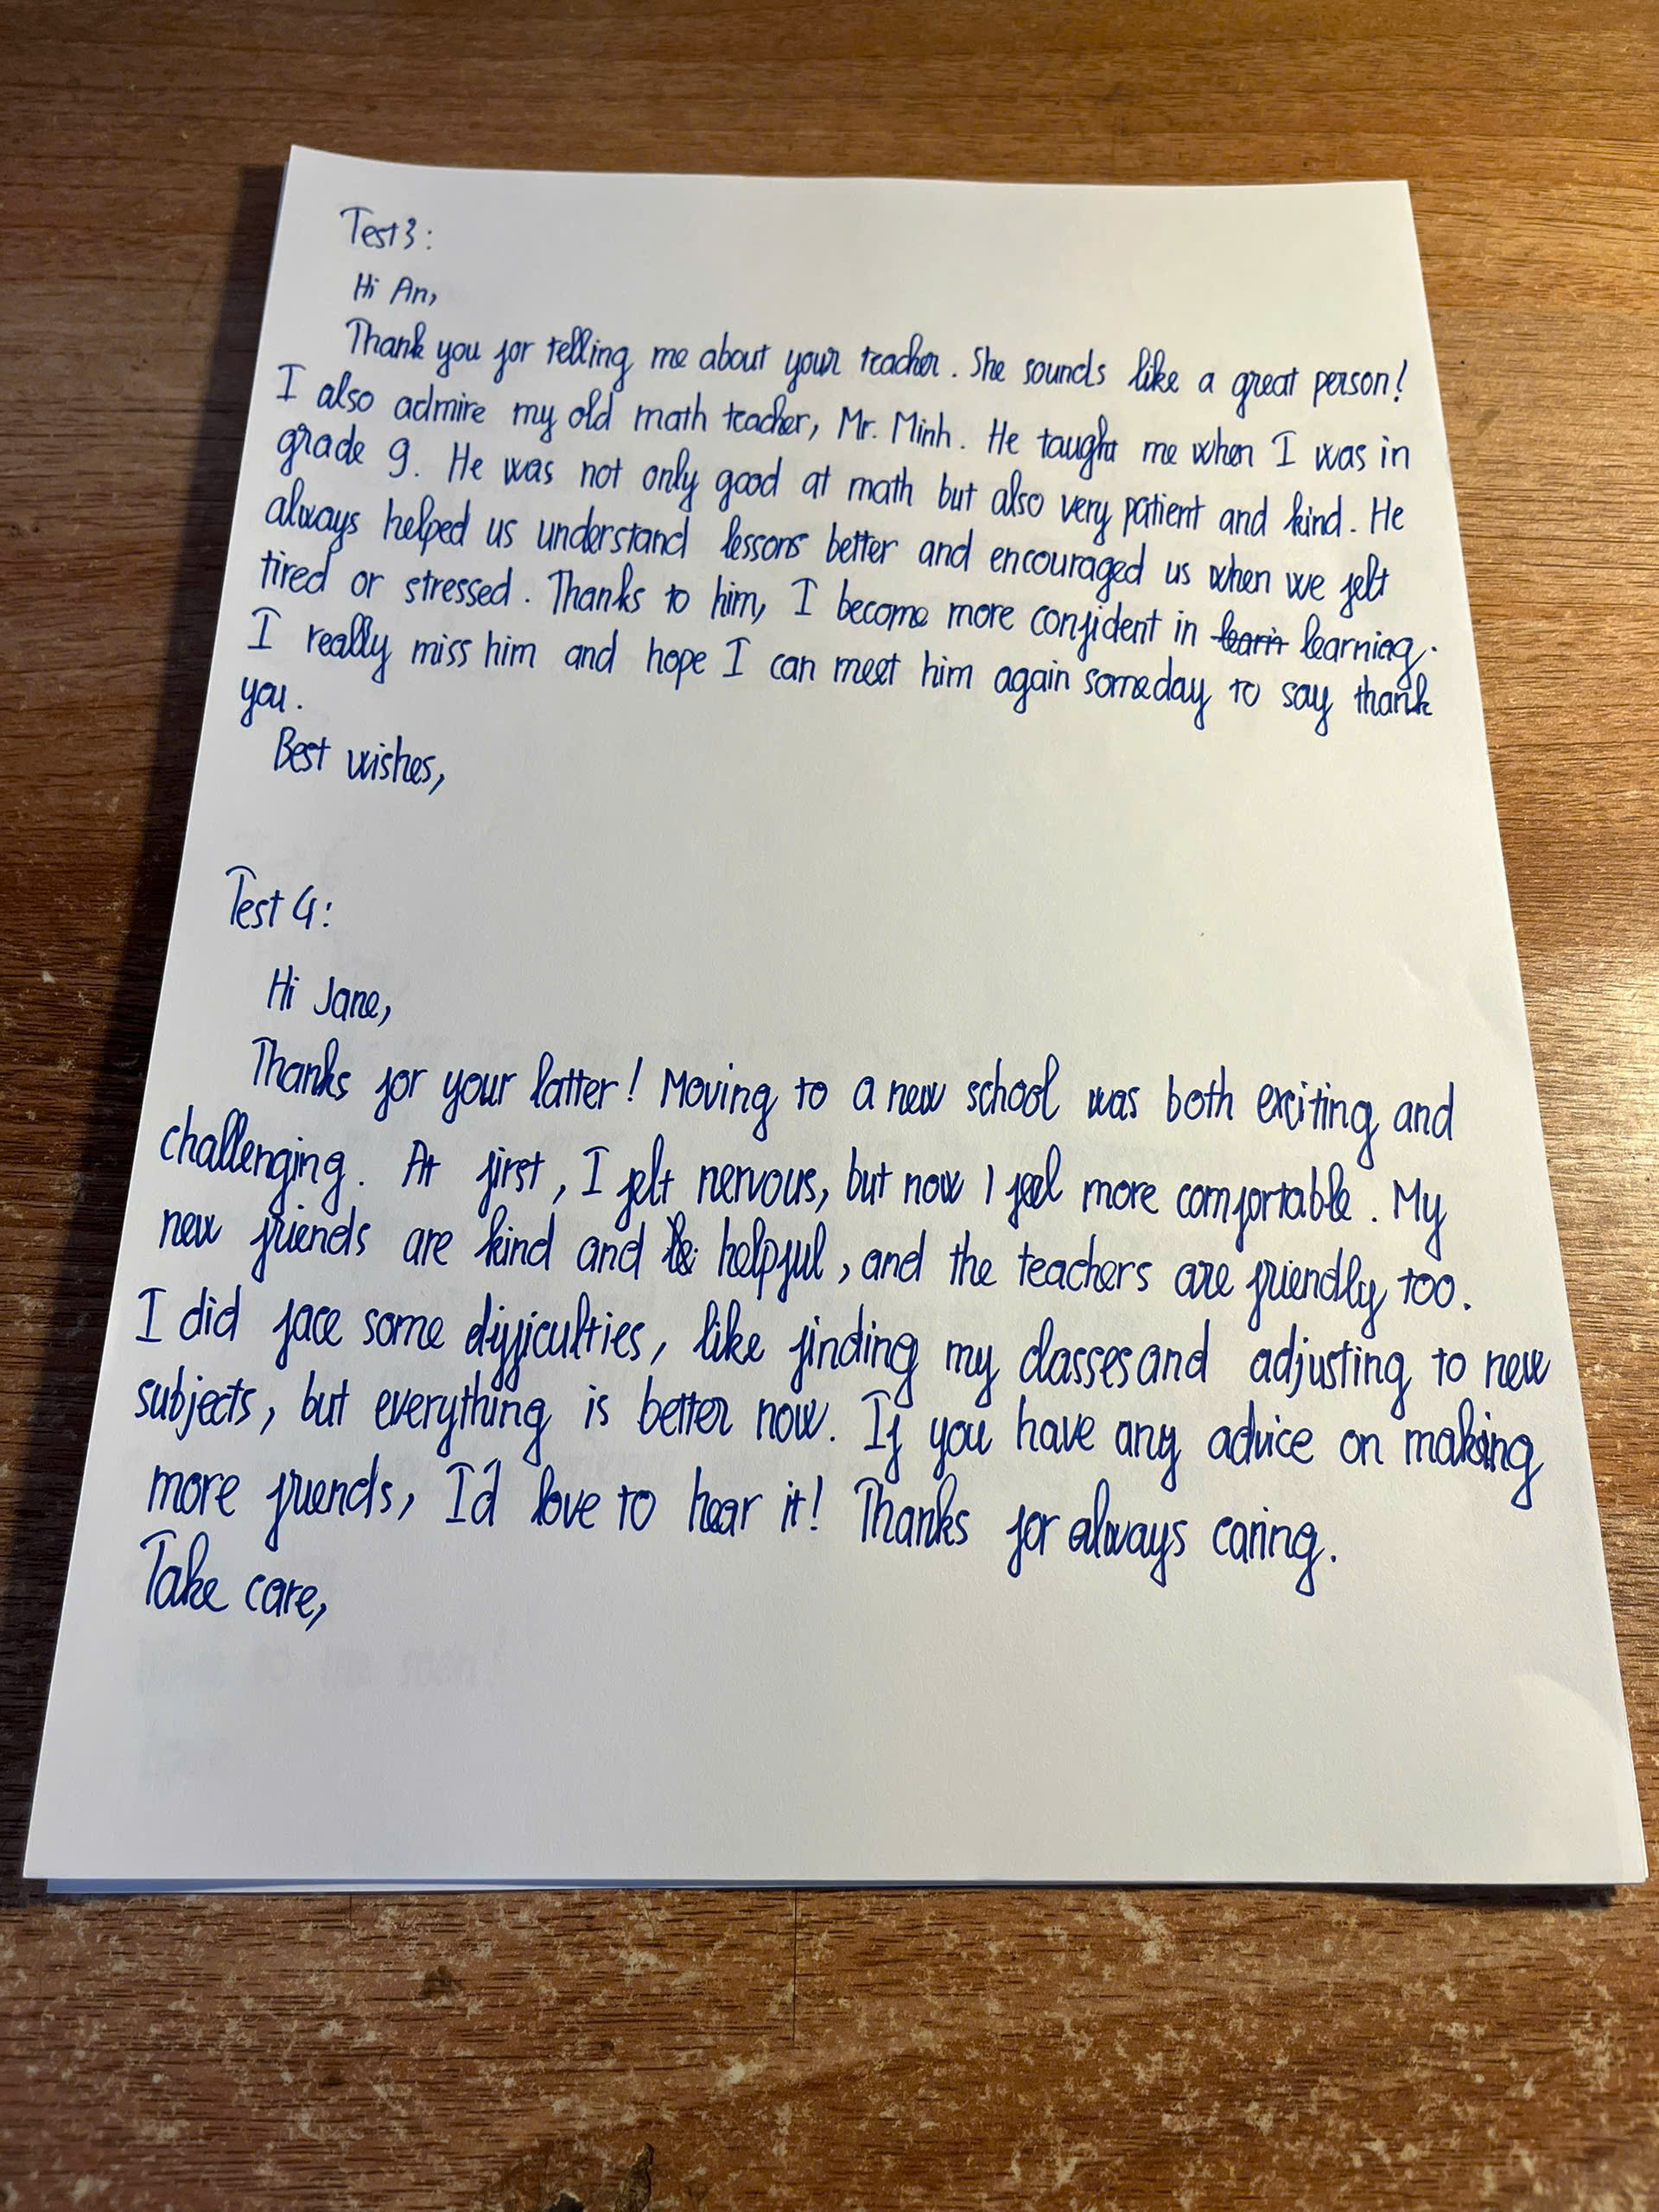 Test 3:
Hi An,
Thank you for telling me about your teacher. She sounds like a great person!
I also admire my old math teacher, Mr. Minh. He taught me when I was in
grade 9. He was not only good at math but also very patient and kind. He
always helped us understand lessons better and encouraged us when we felt
tired or stressed. Thanks to him, I become more confident in learning.
I really miss him and hope I can meet him again someday to say thank
you.
Best wishes,
Test 4:
Hi Jane,
Thanks for your latter! Moving to a new school was both exciting and
challenging. At first, I felt nervous, but now I feel more comfortable. My
new friends are kind and helpful, and the teachers are friendly too.
I did face some difficulties, like finding my classes and adjusting to new
subjects, but everything is better now. If you have any advice on making
more friends, I'd love to hear it! Thanks for always caring.
Take care,